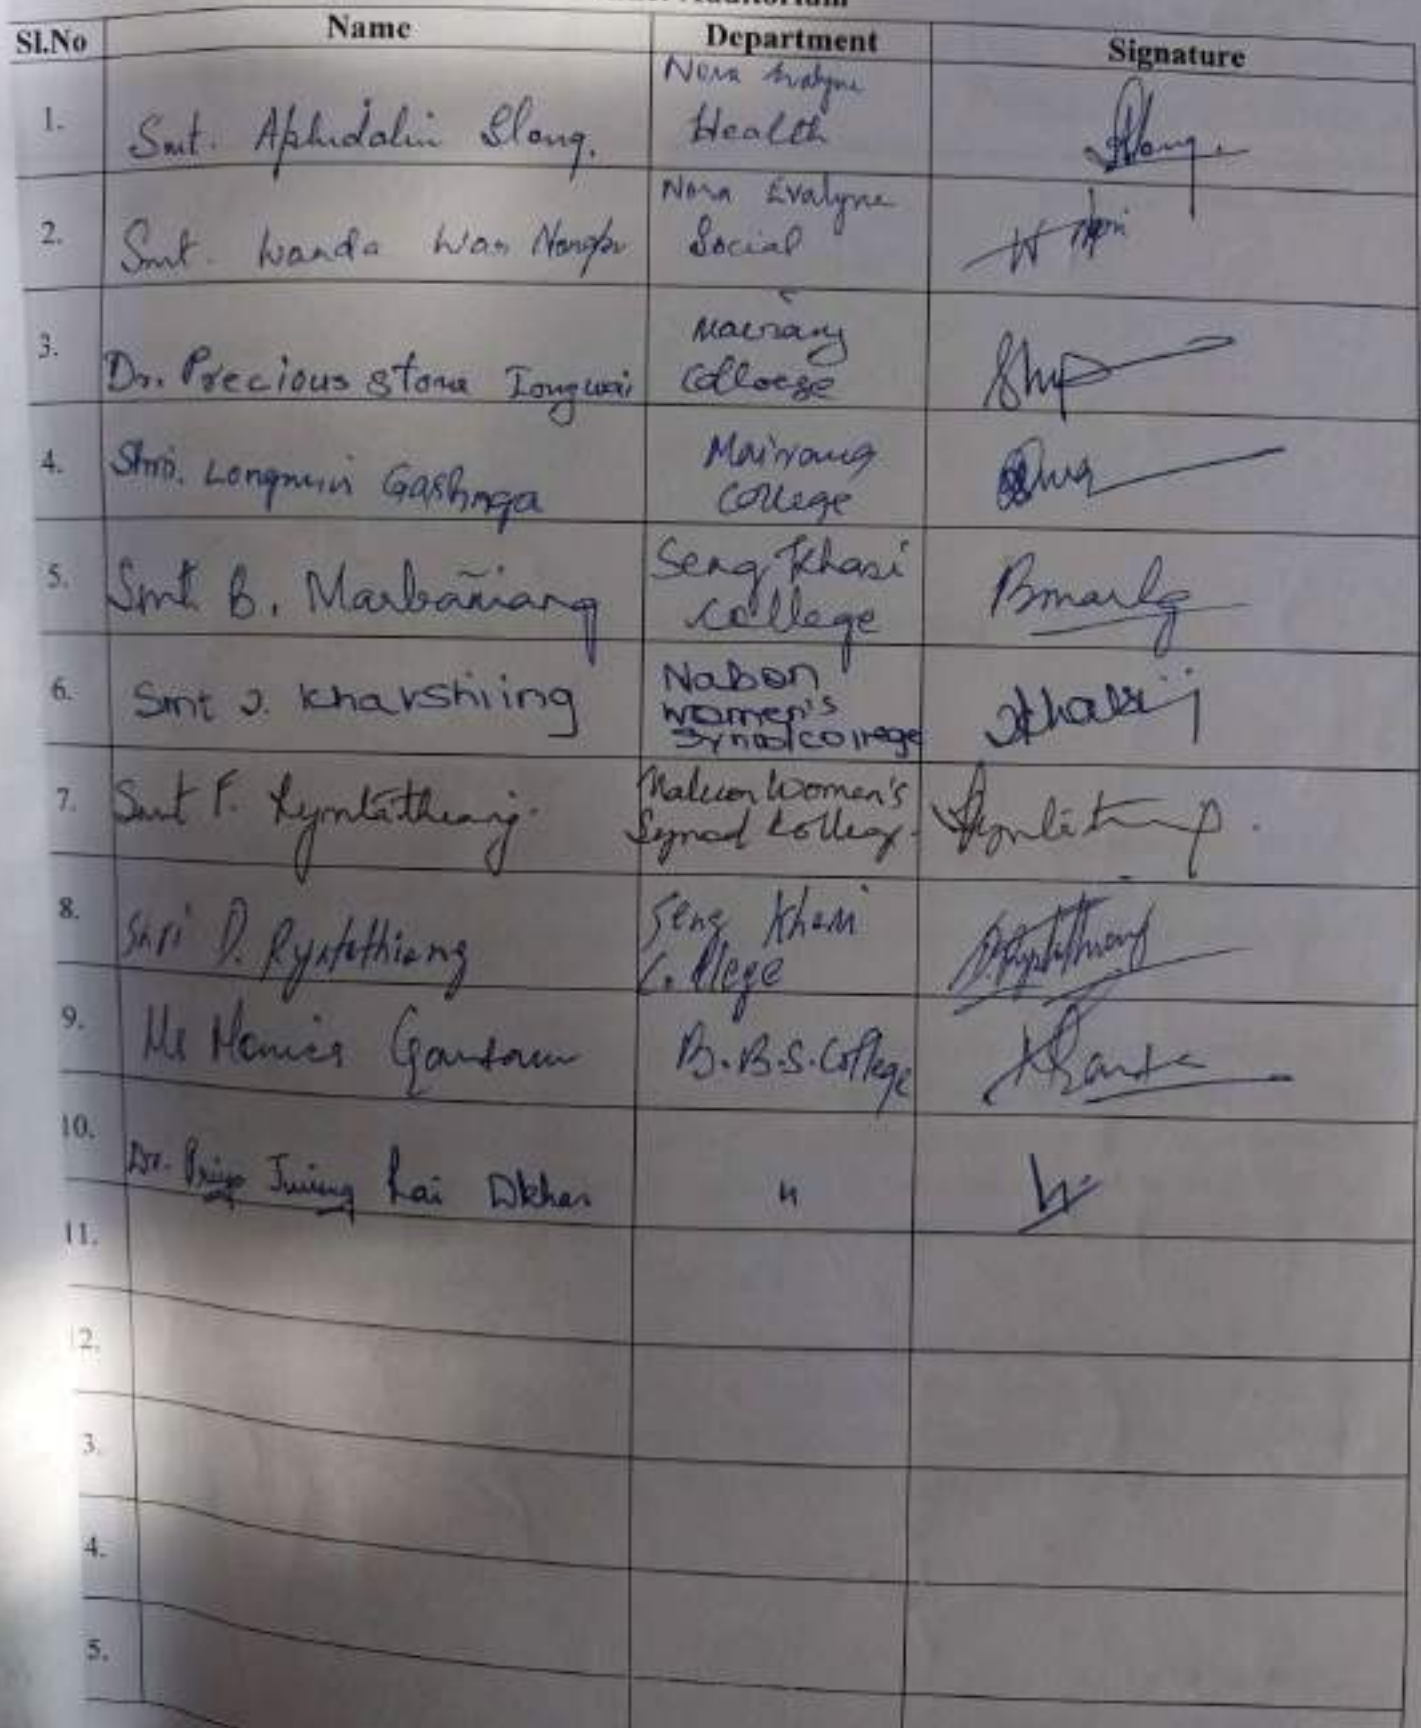 Auditorium
Sl.No Name Department Signature
1. Smt. Aphidalin Slong. Nora Evalyne
Health
2. Smt. Wanda War Nongbri Nora Evalyne
Social
3. Dr. Precious stone Iongwai Mairang
College
4. Shri. Longmin Gashnga Mairang
College
5. Smt. B. Marbaniang Seng Khasi
College
6. Smt J. Kharshiing Nabon
women's
synod college
7. Smt F. Rymtathiang. Nabon Women's
Synod College.
8. Shri D. Ryntathiang Seng Khasi
College
9. Ms Monica Gautam B.B.S. College
10. Dr. Rai Dkhar "
11.
12.
3.
4.
5.